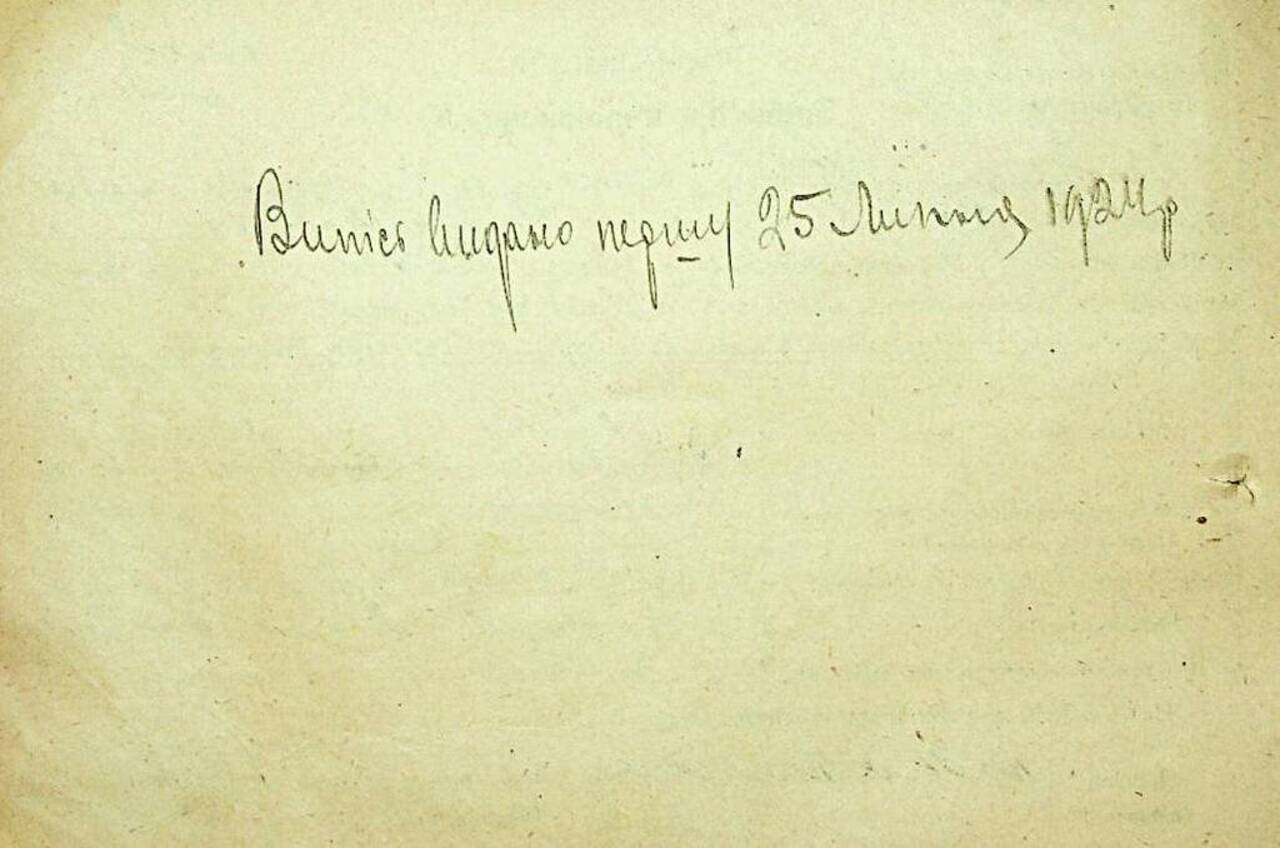 Випісь видано першу 25 Липня 1924 р